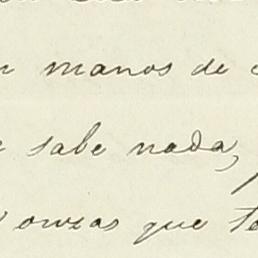 manos de
sabe nada,
onzas que te